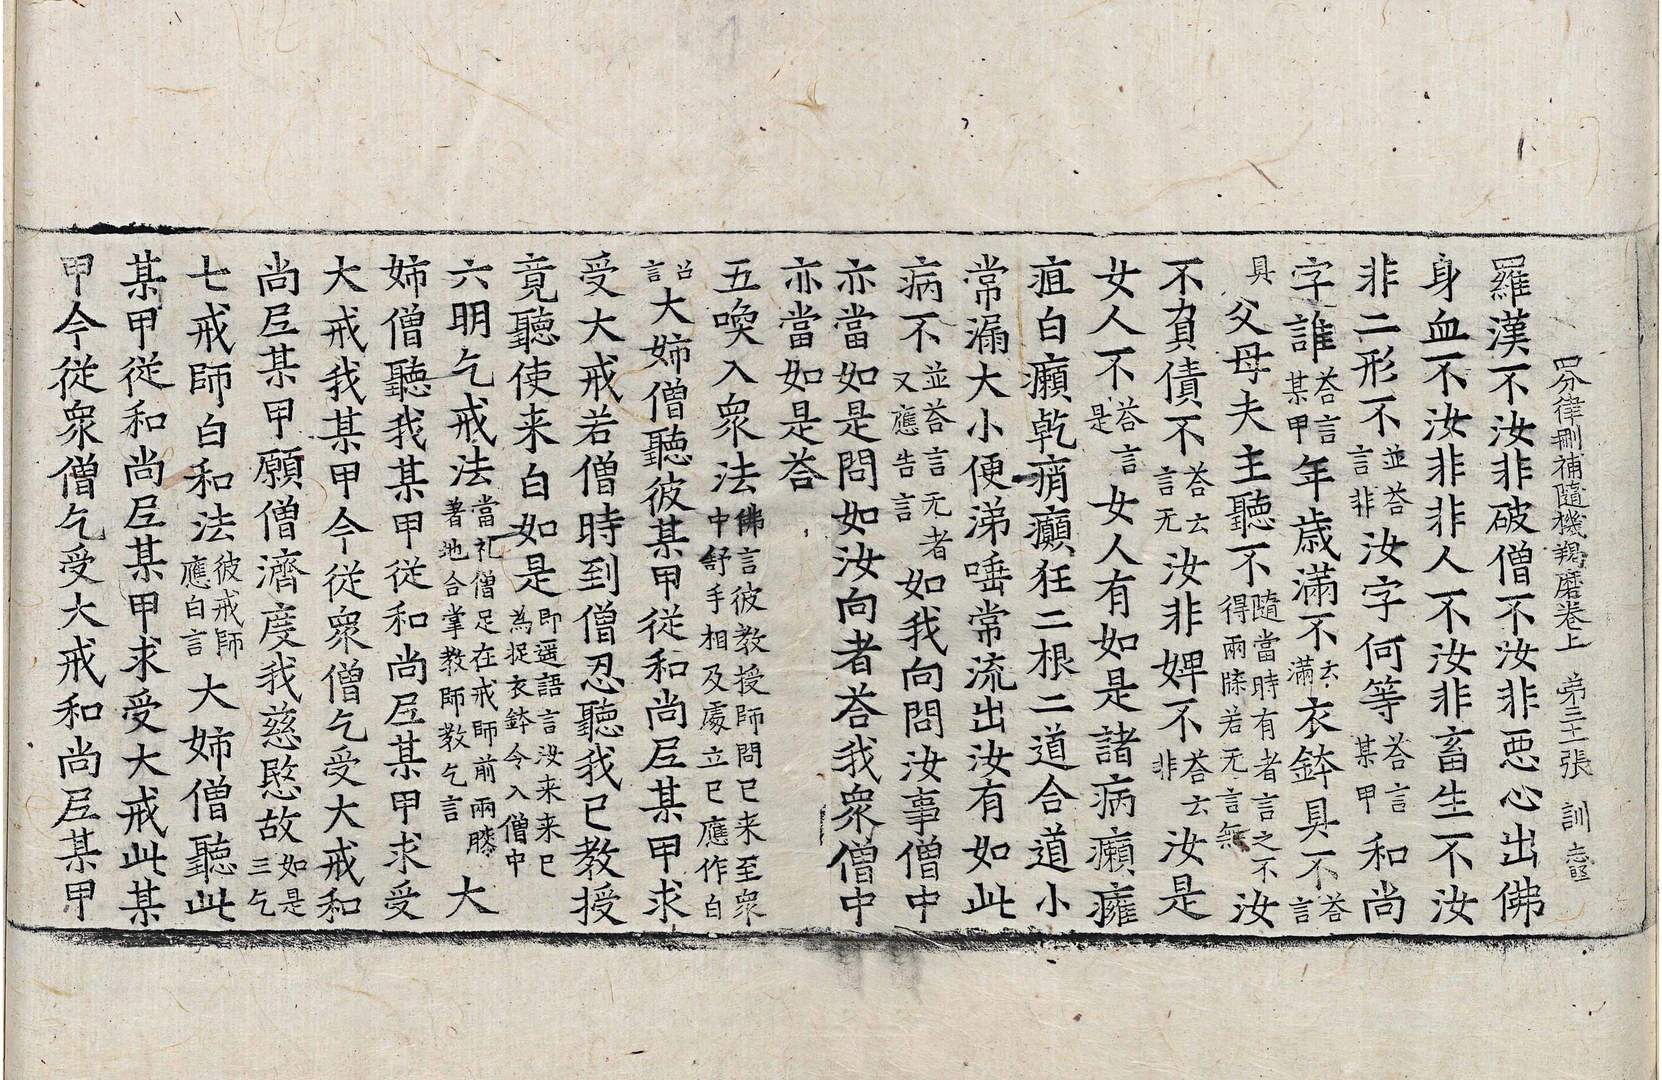 四分律刪補隨機羯磨卷上　第三十二張　訓
羅漢不汝非破僧不汝非惡心出佛
身血不汝非非人不汝非畜生不汝
非二形不並荅言非汝字何等荅言某甲和尚
字誰荅言某甲年歳滿不去滿衣鉢具不荅言
具父母夫主聽不隨當時有者言之不得兩牒若无言無汝
不負債不荅云言无汝非婢不荅云非汝是
女人不荅言是女人有如是諸病癩癰
疽白癩乾痟癲狂二根二道合道小
常漏大小便涕唾常流出汝有如此
病不並荅言无者又應告言如我向問汝事僧中
亦當如是問如汝向者荅我衆僧中
亦當如是荅
五喚入衆法佛言彼教授師問已来至衆中舒手相及處立已應作白
召言大姉僧聽彼某甲從和尚尼某甲求
受大戒若僧時到僧忍聽我已教授
竟聽使来白如是即遥語言汝来来已為捉衣鉢令入僧中
六明乞戒法當礼僧足在戒師前兩膝著地合掌教師教乞言大
姉僧聽我某甲從和尚尼某甲求受
大戒我某甲今從衆僧乞受大戒和
尚尼某甲願僧濟度我慈愍故如是三乞
七戒師白和法彼戒師應白言大姉僧聽此
某甲從和尚尼某甲求受大戒此某
甲今從衆僧乞受大戒和尚尼某甲